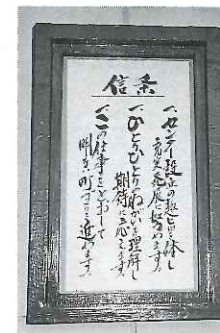 信条
一、センター設立の趣旨を体し
充実発展に努めます。
一、ひとりひとりのねがいを理解し
期待に応えます。
一、この仕事をとおして
明るい町づくりを進めます。